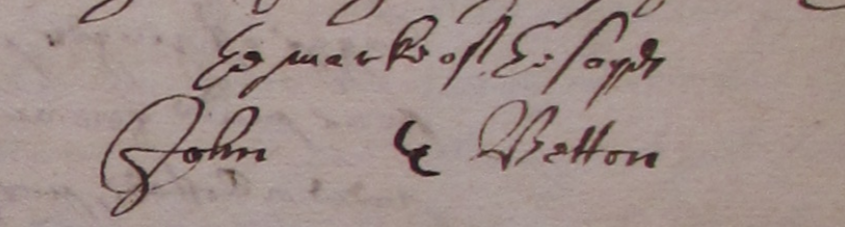 The marke of the sayd
John Vetton